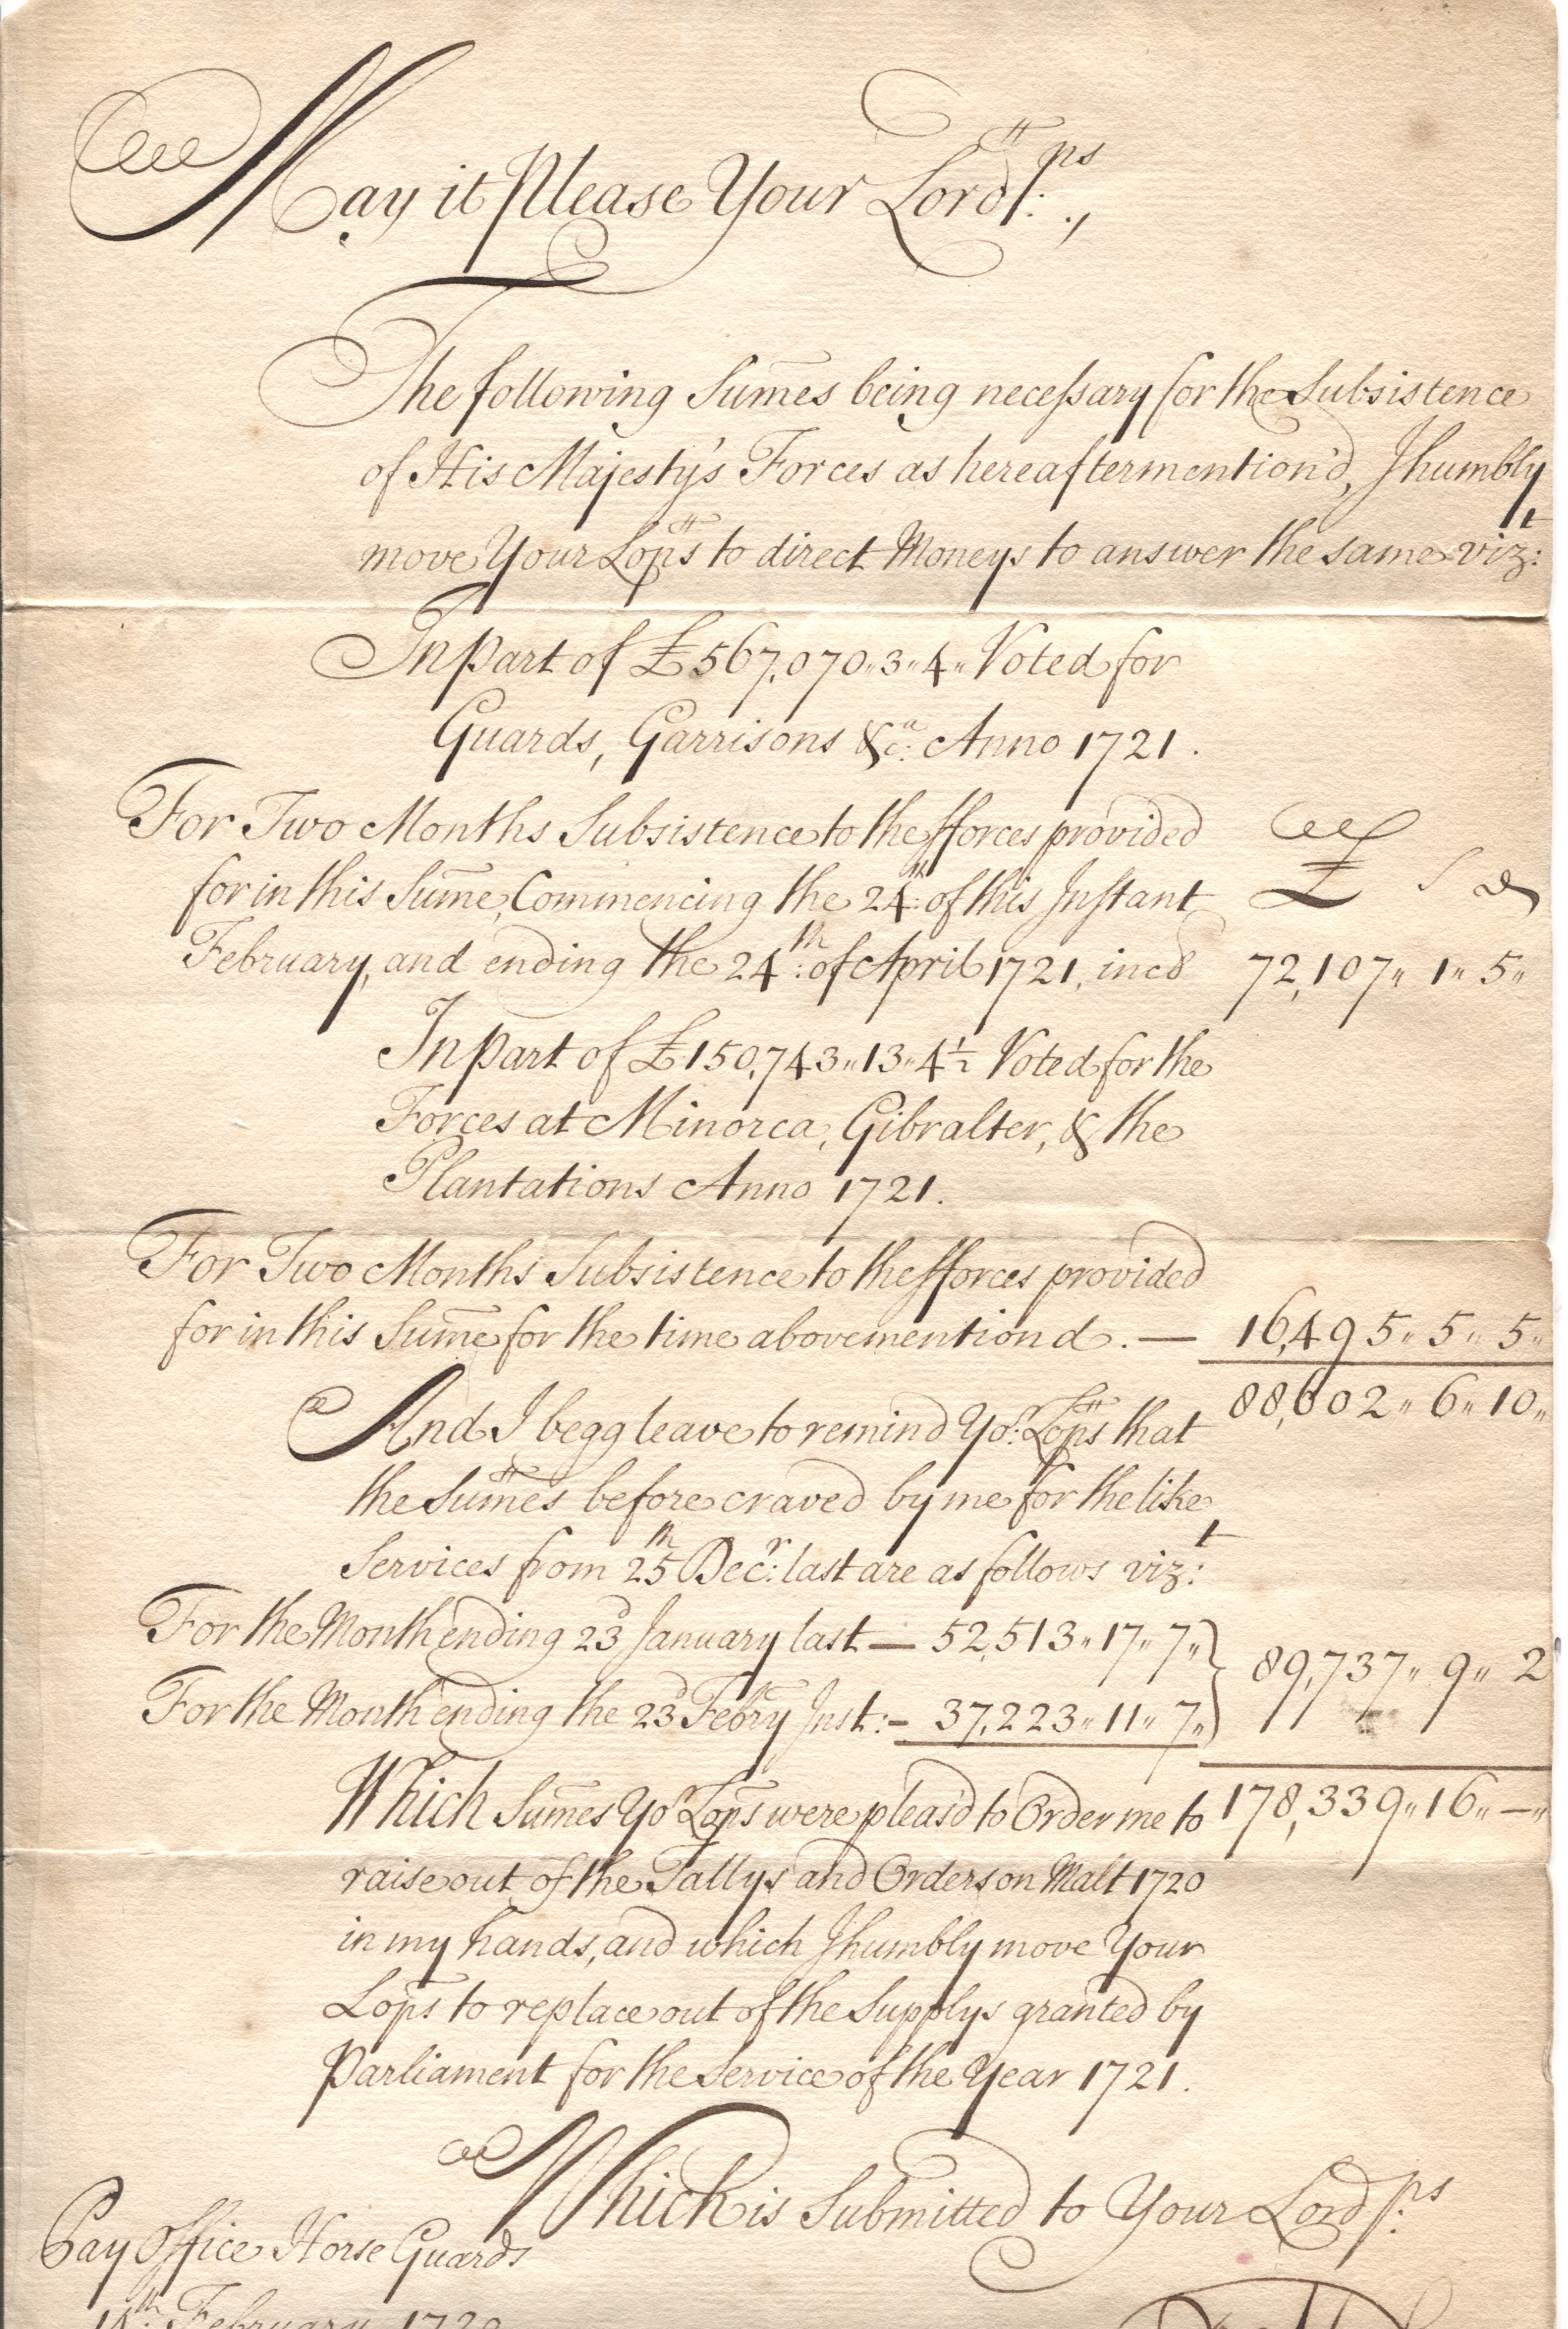 May it Please Your Lordps:.,
The following Sumes being necessary for the Subsistence
of His Majesty's Forces as hereaftermention'd, I humbly
move Your Lops to direct Moneys to answer the same vizt:
In part of £567,070„3„4„ Voted for
Guards, Garrisons &ca: Anno 1721.
For Two Months Subsistence to the fforces provided
for in this Sume, Commencing the 24th: of this Instant £ s d
February, and ending the 24th: of April 1721, incd 72,107„ 1„ 5„
In part of £150,743„13„4½ Voted for the
Forces at Minorca, Gibralter, & the
Plantations Anno 1721.
For Two Months Subsistence to the fforces provided
for in this Sume for the time abovementiond. — 16,495„ 5„ 5„
88,602„ 6„ 10„
And I begg leave to remind Yor: Lops that
the Sumes before craved by me for the like
Services from 25th Decr: last are as follows vizt:
For the Month ending 23d January last — 52,513„ 17„ 7„ } 89,737„ 9„ 2
For the Month ending the 23d Febry Inst:- 37,223„ 11„ 7„
Which Sumes Yor Lops were pleas'd to Order me to 178,339„ 16„ —„
raise out of the Tallys and Orders on Malt 1720
in my hands, and which I humbly move Your
Lops to replace out of the Supplys granted by
Parliament for the Service of the Year 1721.
Which is Submitted to Your Lordps:
Pay Office Horse Guards
February 1720